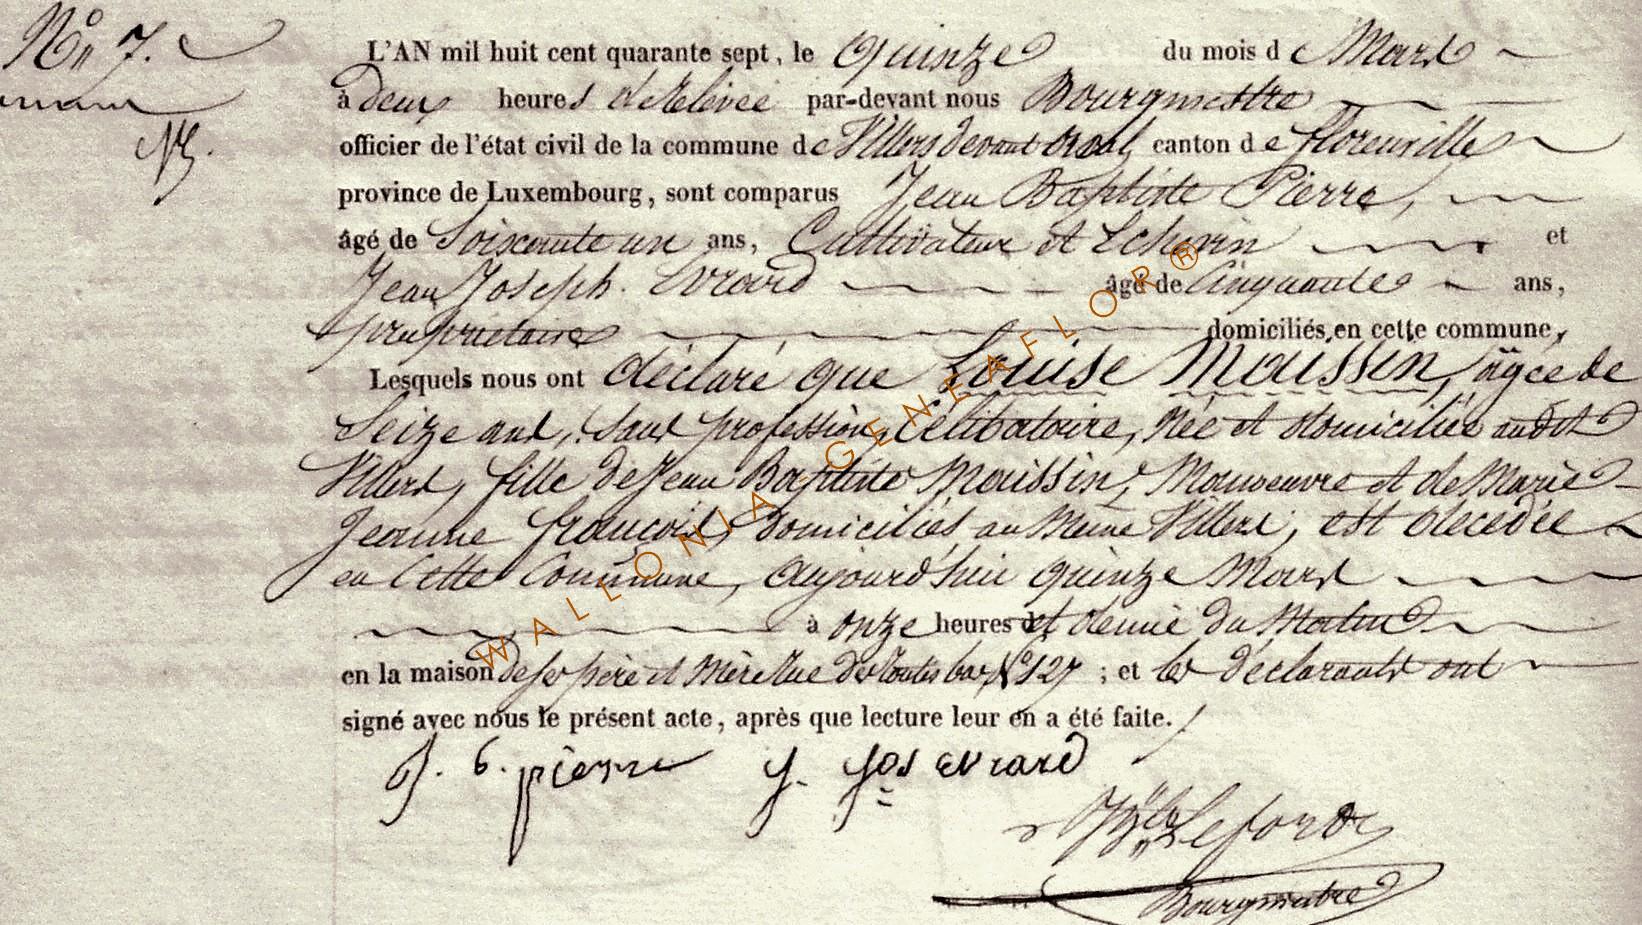 N° 7.
L'AN mil huit cent quarante sept, le quinze du mois de Mars
à deux heures de relevée par-devant nous Bourgmestre
officier de l'état civil de la commune de Villers devant orval, canton de florenville
province de Luxembourg, sont comparus Jean Baptiste Pierre,
âgé de Soixante un ans, Cultivateur et Echevin et
Jean Joseph Evrard âgé de Cinquante ans,
propriétaire domiciliés en cette commune,
Lesquels nous ont déclaré que Louise Maissin, agée de
Seize ans, sans profession, Célibataire, Née et domiciliée audit
Villers, fille de Jean Baptiste Maissin, Manoeuvre et de Marie
Jeanne françois, Domiciliés au Même Villers, est décédée
en Cette Commune, aujourd'hui quinze Mars
à onze heures et demie du Matin
en la maison de ses père et Mère Rue des N° 127 ; et les déclarants ont
signé avec nous le présent acte, après que lecture leur en a été faite.
J. b. pierre J. Jos evrard
Bourgmestre
WALLONIA - GENEAFLOR ®